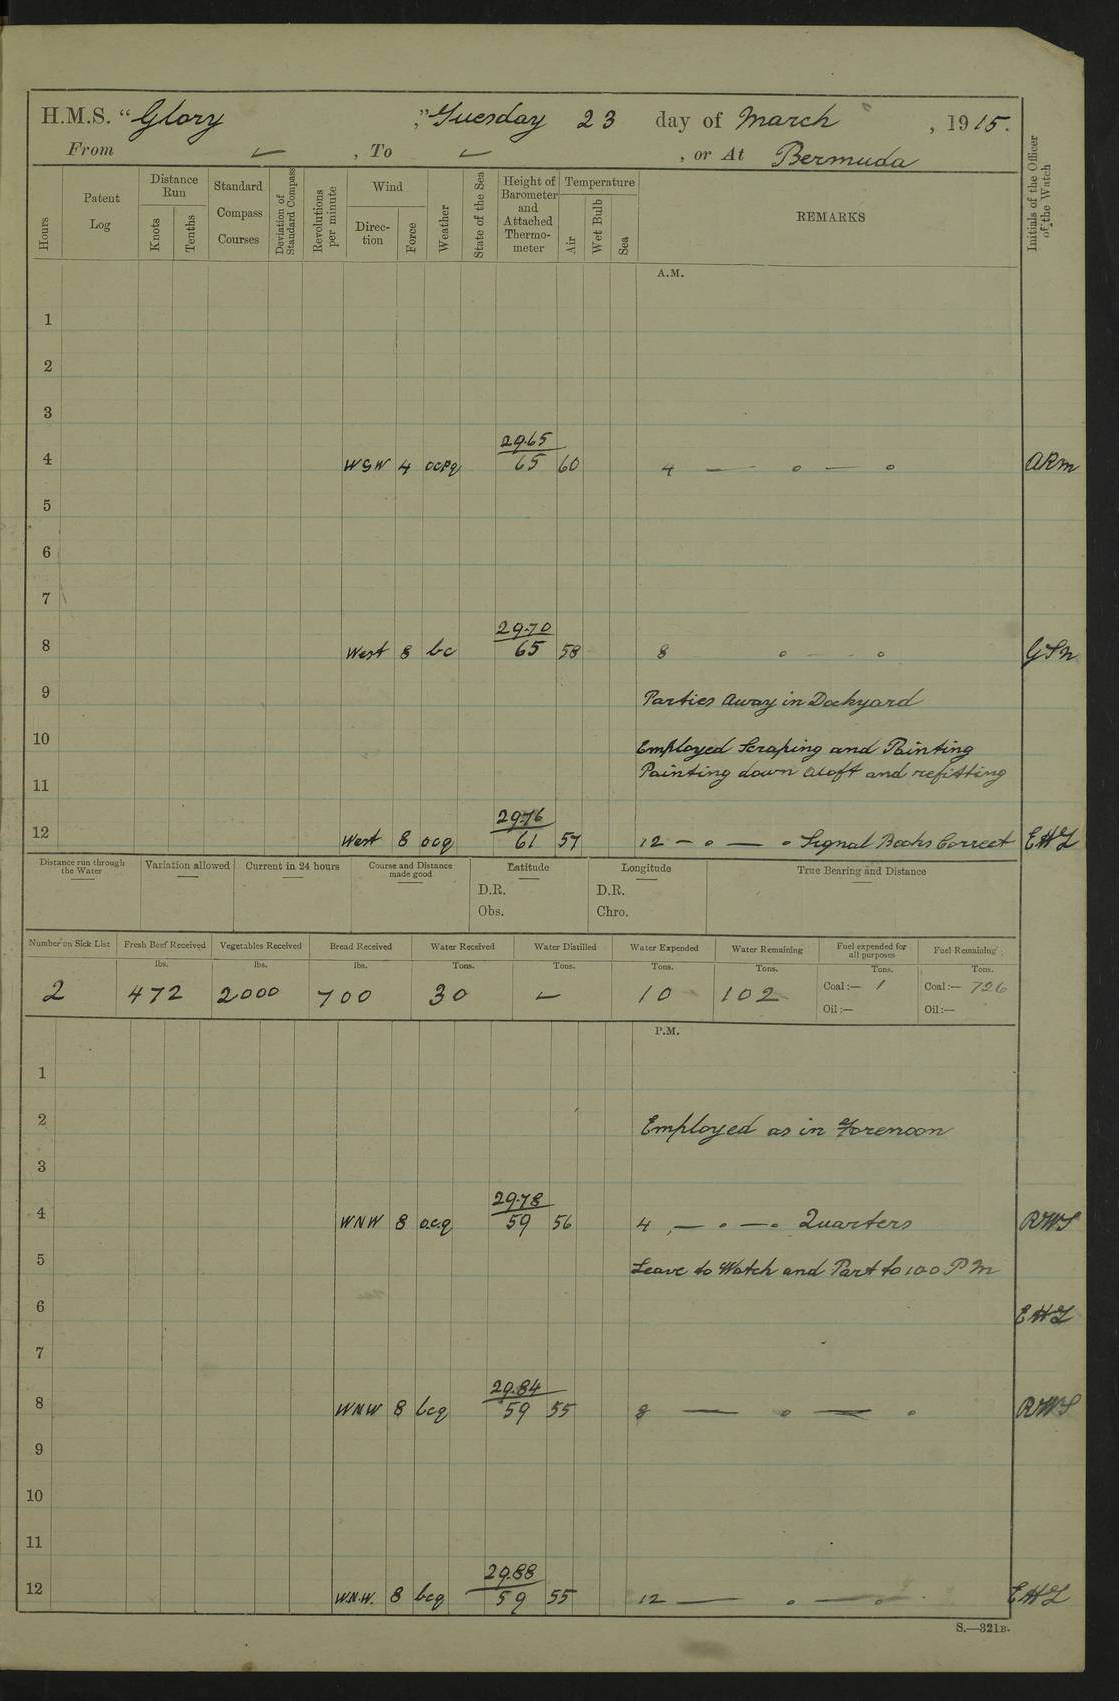 H.M.S. “Glory ,” Tuesday 23 day of March , 1915.
From ✓ , To ✓ , or At Bermuda
Hours
Patent Log
Distance Run
Knots
Tenths
Standard Compass Courses
Deviation of Standard Compass
Revolutions per minute
Wind
Direction
Force
Weather
State of the Sea
Height of Barometer and Attached Thermometer
Temperature
Air
Wet Bulb
Sea
REMARKS
Initials of the Officer of the Watch
A.M.
1
2
3
29.65
4 WSW 4 ocpq 65 60 4 — o — o ARM
5
6
7
29.70
8 West 8 bc 65 58 8 o o
9 Parties Away in Dockyard
10 Employed Scraping and Painting
Painting down aloft and refitting
11
29.76
12 West 8 ocq 61 57 12 — o — o Signal Books Correct
Distance run through the Water
Variation allowed
Current in 24 hours
Course and Distance made good
Latitude
D.R.
Obs.
Longitude
D.R.
Chro.
True Bearing and Distance
Number on Sick List Fresh Beef Received Vegetables Received Bread Received Water Received Water Distilled Water Expended Water Remaining Fuel expended for all purposes Fuel Remaining
lbs. lbs. lbs. Tons. Tons. Tons. Tons. Tons. Tons.
2 472 2000 700 30 ✓ 10 102 Coal:— 1 Coal:— 726
Oil:— Oil:—
P.M.
1
2 Employed as in Forenoon
3
29.78
4 WNW 8 ocq 59 56 4 — o — o Quarters RWS
5 Leave to Watch and Part to 10.0 PM
6
7
29.84
8 WNW 8 bcq 59 55 8 — o — o RWS
9
10
11
29.88
12 W.N.W. 8 bcq 59 55 12 — o — o
S.—321B.